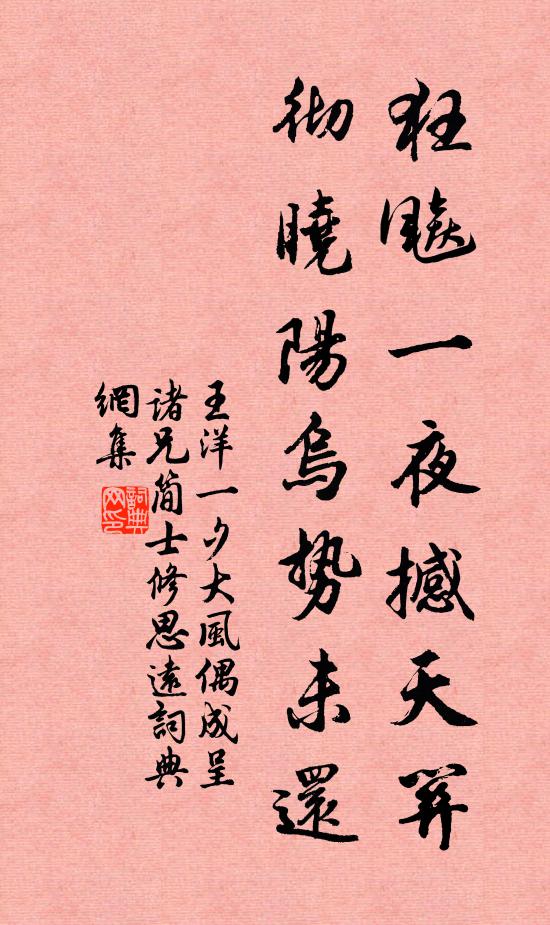 狂飈一夜撼天關
徹曉陽烏勢未還
王洋一夕大風偶成呈
諸兄簡士修思遠詞典
網集
詞典网印